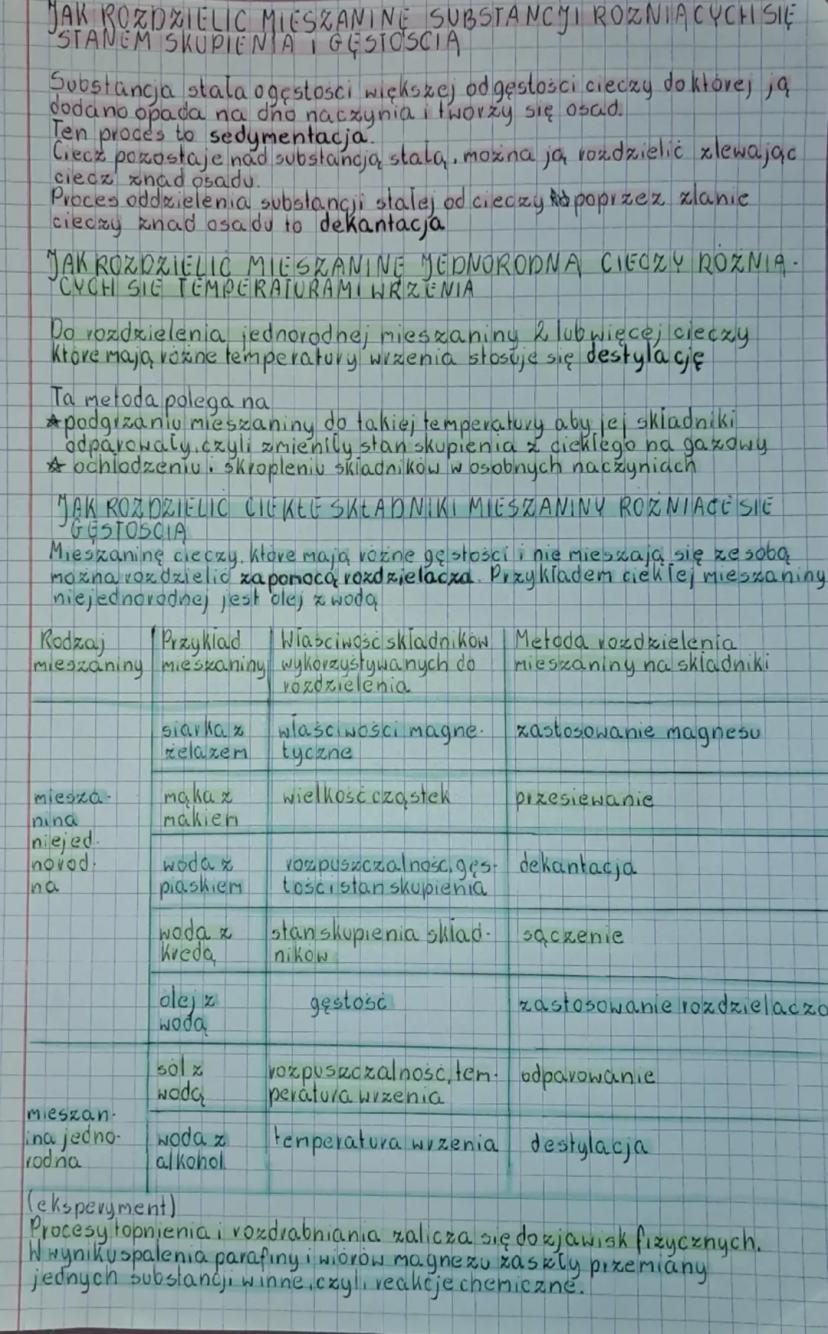 JAK ROZDZIELIĆ MIESZANINĘ SUBSTANCJI RÓŻNIĄCYCH SIĘ
STANEM SKUPIENIA I GĘSTOŚCIĄ
Substancja stała o gęstości większej od gęstości cieczy do której ją
dodano opada na dno naczynia i tworzy się osad.
Ten proces to sedymentacja.
Ciecz pozostaje nad substancją stałą, można ją rozdzielić zlewając
ciecz znad osadu.
Proces oddzielenia substancji stałej od cieczy poprzez zlanie
cieczy znad osadu to dekantacja
JAK ROZDZIELIĆ MIESZANINĘ JEDNORODNĄ CIECZY RÓŻNIĄ-
CYCH SIĘ TEMPERATURAMI WRZENIA
Do rozdzielenia jednorodnej mieszaniny 2 lub więcej cieczy
które mają różne temperatury wrzenia stosuje się destylację
Ta metoda polega na
☆ podgrzaniu mieszaniny do takiej temperatury aby jej składniki
odparowały, czyli zmieniły stan skupienia z ciekłego na gazowy
☆ ochłodzeniu i skropleniu składników w osobnych naczyniach
JAK ROZDZIELIĆ CIEKŁE SKŁADNIKI MIESZANINY RÓŻNIĄCE SIĘ
GĘSTOŚCIĄ
Mieszaninę cieczy, które mają różne gęstości i nie mieszają się ze sobą
można rozdzielić za pomocą rozdzielacza. Przykładem ciekłej mieszaniny
niejednorodnej jest olej z wodą
Rodzaj mieszaniny
Przykład mieszaniny
Właściwość składników wykorzystywanych do rozdzielenia
Metoda rozdzielenia mieszaniny na składniki
miesza-
nina
niejed-
norod-
na
siarka z żelazem
właściwości magne-
tyczne
zastosowanie magnesu
mąka z makiem
wielkość cząstek
przesiewanie
woda z piaskiem
rozpuszczalność, gęs-
tość i stan skupienia
dekantacja
woda z kredą
stan skupienia skład-
ników
sączenie
olej z wodą
gęstość
zastosowanie rozdzielacza
mieszan-
ina jedno-
rodna
sól z wodą
rozpuszczalność, tem-
peratura wrzenia
odparowanie
woda z alkohol
temperatura wrzenia
destylacja
(eksperyment)
Procesy topnienia i rozdrabniania zalicza się do zjawisk fizycznych.
W wyniku spalenia parafiny i wiórów magnezu zaszły przemiany
jednych substancji w inne, czyli reakcje chemiczne.